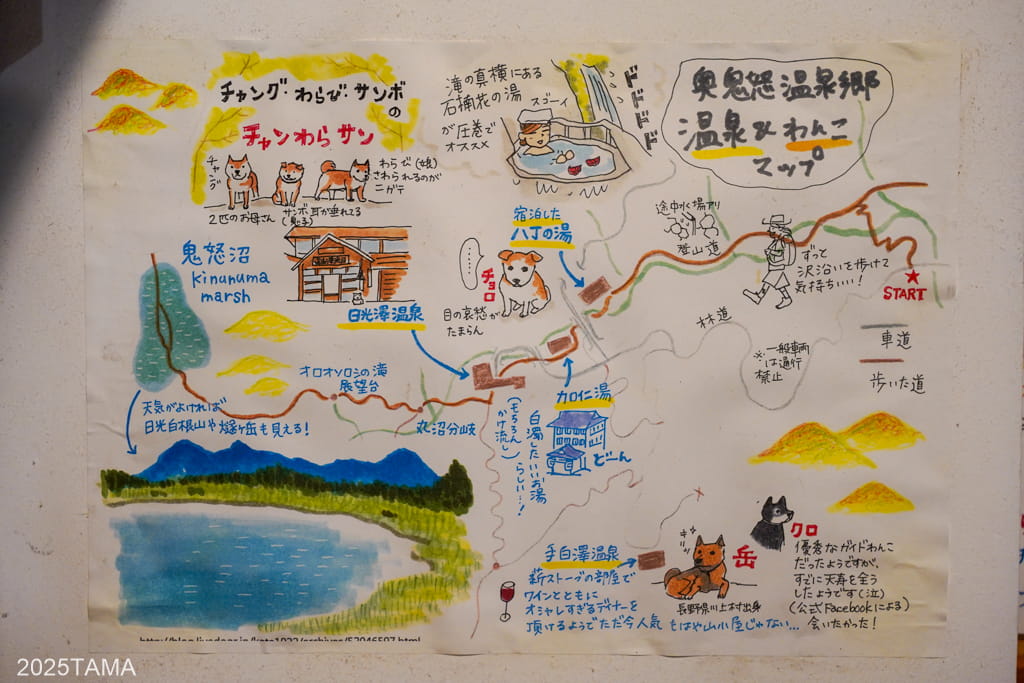 奥鬼怒温泉郷
温泉&わんこ
マップ
チャング・わらび・サンボ
の
チャンわらサン
チャング
わらび(娘)
さわられるのが
ニガテ
2匹のお母さん
サンボ耳が垂れてる
(息子)
滝の真横にある
石楠花の湯
が圧巻で
オススメ
スゴーイ
ドドドド
宿泊した
八丁の湯
途中水場アリ
登山道
ずっと
沢沿いを歩けて
気持ちいい!
START
鬼怒沼
kinunuma
marsh
日光澤温泉
チョロ
目の哀愁が
たまらん
林道
※一般車両
は通行
禁止
車道
歩いた道
オロオソロシの滝
展望台
丸沼分岐
天気がよければ
日光白根山や燧ヶ岳も見える!
加仁湯
白濁したいいお湯
らしい…!
(もちろん
かけ流し)
どーん
手白澤温泉
薪ストーブの部屋で
ワインとともに
オシャレすぎるディナーを
頂けるようでただ今人気
もはや山小屋じゃない…
キリッ
岳
長野県川上村出身
クロ
優秀なガイドわんこ
だったようですが、
すでに天寿を全う
したようです(泣)
(公式Facebookによる)
会いたかった!
2025TAMA